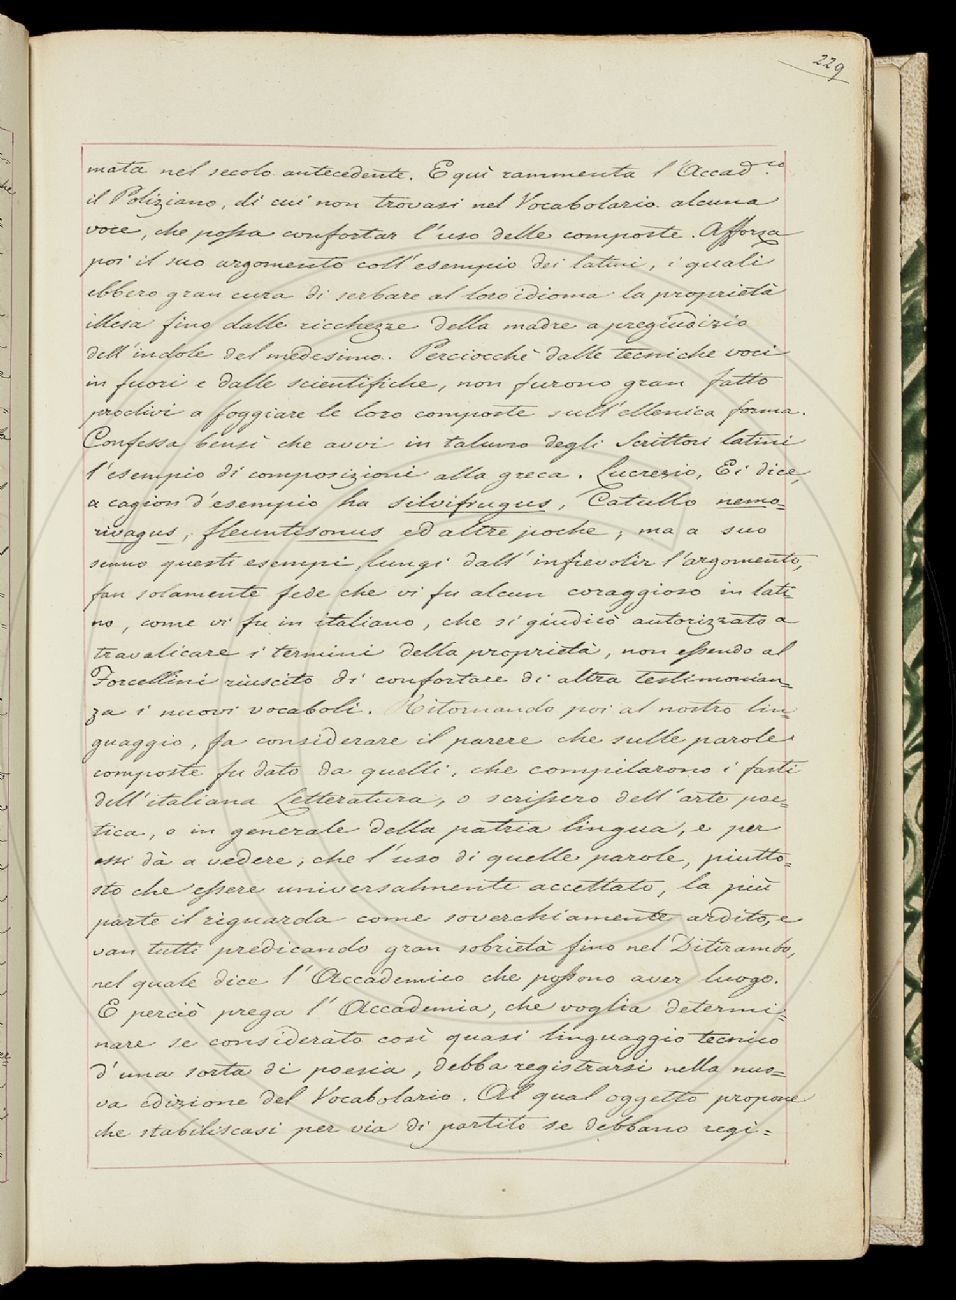 229
mata nel secolo antecedente. E quì rammenta l'Accad.co
il Poliziano, di cui non trovasi nel Vocabolario alcuna
voce, che possa confortar l'uso delle composte. Afforza
poi il suo argomento coll'esempio dei latini, i quali
ebbero gran cura di serbare al loro idioma la proprietà
illesa fino dalle ricchezze della madre a pregiudizio
dell'indole del medesimo. Perciocchè dalle tecniche voci
in fuori e dalle scientifiche, non furono gran fatto
proclivi a foggiare le loro composte sull'ellenica forma.
Confessa bensì che avvi in taluno degli Scrittori latini
l'esempio di composizioni alla greca. Lucrezio, Ei dice,
a cagion d'esempio ha silvifrugus, Catullo nemo-
rivagus, fleuntisonus ed altre poche; ma a suo
senno questi esempi, lungi dall'infievolir l'argomento,
fan solamente fede che vi fu alcun coraggioso in lati=
no, come vi fu in italiano, che si giudicò autorizzato a
travalicare i termini della proprietà, non essendo al
Forcellini riuscito di confortare di altra testimonian=
za i nuovi vocaboli. Ritornando poi al nostro lin=
guaggio, fa considerare il parere che sulle parole
composte fu dato da quelli, che compilarono i fasti
dell'italiana Letteratura, o scrissero dell'arte poe=
tica, o in generale della patria lingua, e per
essi dà a vedere, che l'uso di quelle parole, piutto=
sto che essere universalmente accettato, la più
parte il riguarda come soverchiamente ardito, e
van tutti predicando gran sobrietà fino nel Ditirambo,
nel quale dice l'Accademico che possono aver luogo.
E perciò prega l'Accademia, che voglia determi=
nare se considerato così quasi linguaggio tecnico
d'una sorta di poesia, debba registrarsi nella nuo=
va edizione del Vocabolario. Al qual oggetto propone
che stabiliscasi per via di partito se debbano regi=